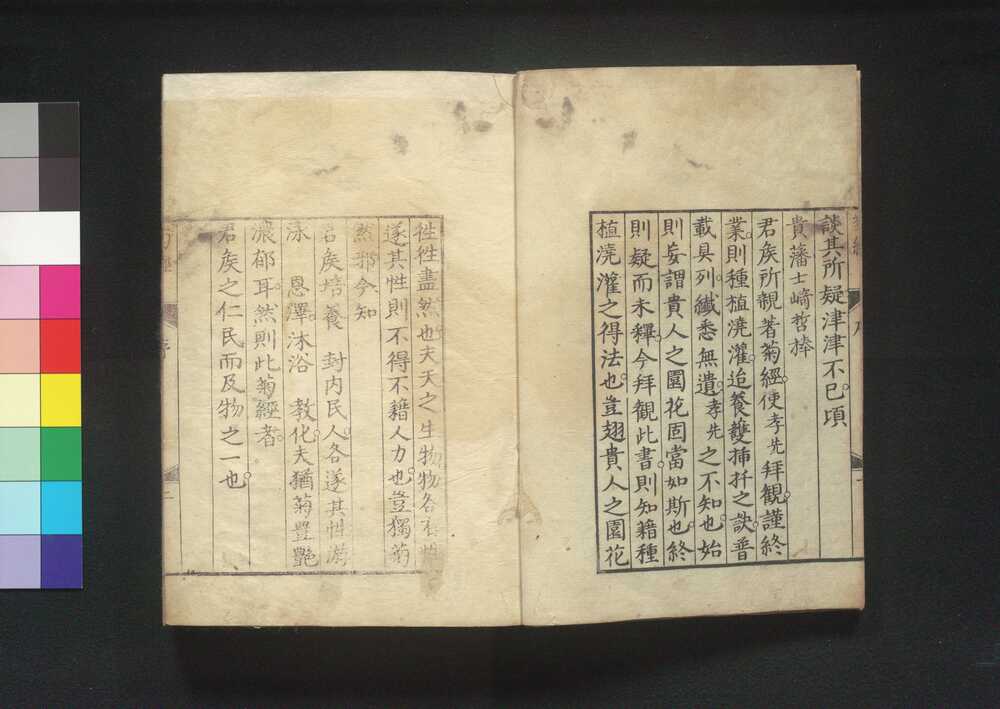 談其所疑津津不已頃
貴藩士崎哲捧
君矦所親著菊經使孝先拜觀謹終
業則種植澆灌迨養䕶揷扦之訣普
載具列纎悉無遺孝先之不知也始
則妄謂貴人之園花固當如斯也終
則疑而未釋今拜觀此書則知藉種
植澆灌之得法也豈翅貴人之園花
徃徃盡然也夫天之生物物各有性
遂其性則不得不藉人力也豈獨菊
然邪今知
君矦培養 封内民人各遂其性游
泳 恩澤沐浴 教化夫猶菊豐艷
濃郁耳然則此菊經者
君矦之仁民而及物之一也